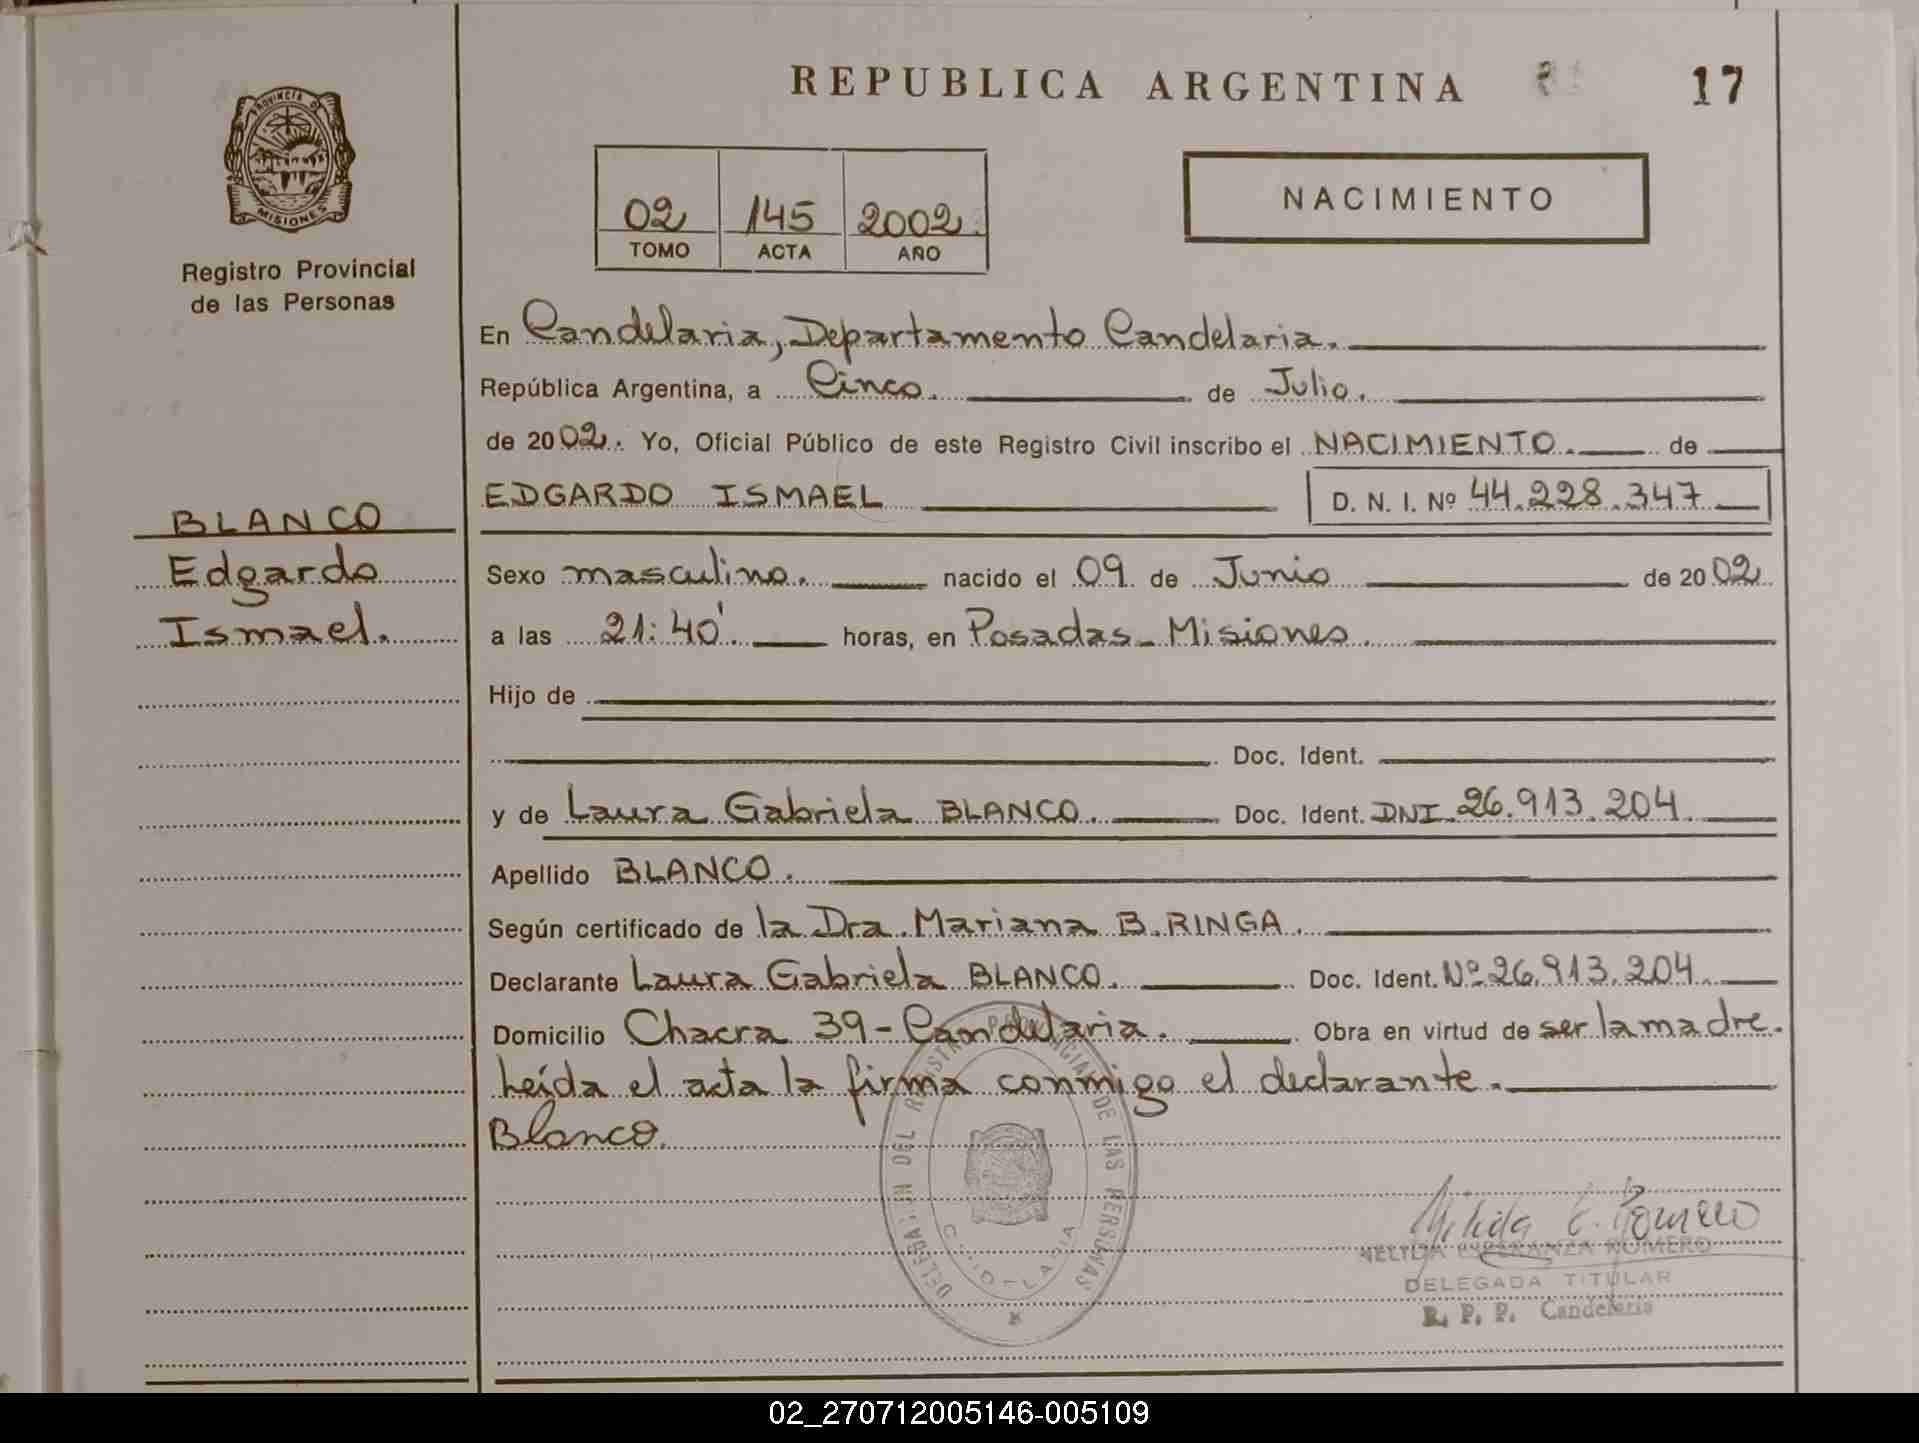 REPUBLICA ARGENTINA
17
PROVINCIA DE
MISIONES
Registro Provincial
de las Personas
02 145 2002
TOMO ACTA AÑO
NACIMIENTO
En Candelaria, Departamento Candelaria.
República Argentina, a Cinco. de Julio.
de 2002. Yo, Oficial Público de este Registro Civil inscribo el NACIMIENTO. de
EDGARDO ISMAEL D. N. I. Nº 44.228.347
BLANCO
Edgardo
Ismael.
Sexo masculino. nacido el 09 de Junio de 2002
a las 21:40'. horas, en Posadas - Misiones.
Hijo de
Doc. Ident.
y de Laura Gabriela BLANCO. Doc. Ident. DNI 26.913.204.
Apellido BLANCO.
Según certificado de la Dra. Mariana B. RINGA.
Declarante Laura Gabriela BLANCO. Doc. Ident. Nº 26.913.204.
Domicilio Chacra 39 - Candelaria. Obra en virtud de ser la madre.
Leída el acta la firma conmigo el declarante.
Blanco.
DEL REGISTRO PROVINCIAL DE LAS PERSONAS
Nelida E. Romero
NELIDA ESPERANZA ROMERO
DELEGADA TITULAR
R. P. P. Candelaria
02_270712005146-005109